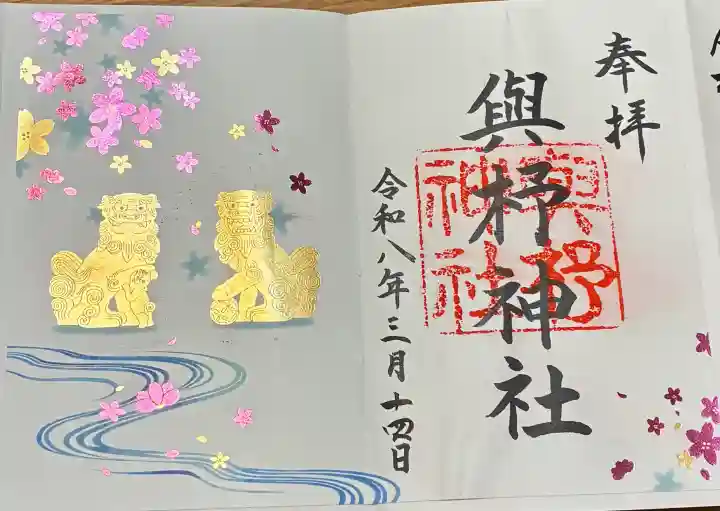 奉拝
與杼神社
與杼神社
令和八年三月十四日